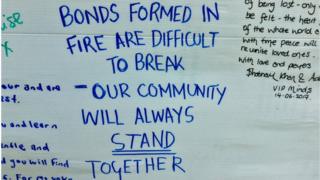 BONDS FORMED IN
FIRE ARE DIFFICULT
TO BREAK
- OUR COMMUNITY
WILL ALWAYS
STAND
TOGETHER
of being lost - only
be felt - the heart
of the whole world
with time peace will
reunite loved ones.
with love and prayers
VIP Minds
14-06-2017
our and are
and learn
and
you will find